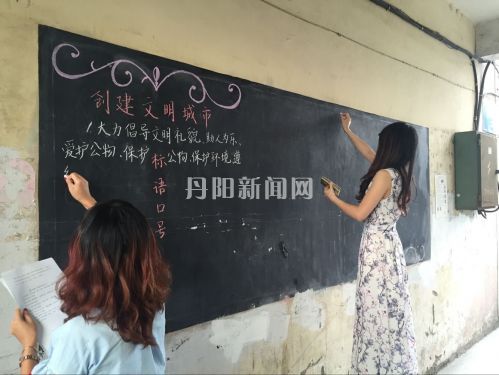 创建文明城市
1大力倡导文明礼貌、助人为乐、
爱护公物、保护公物、保护环境遵
标语口号
丹阳新闻网